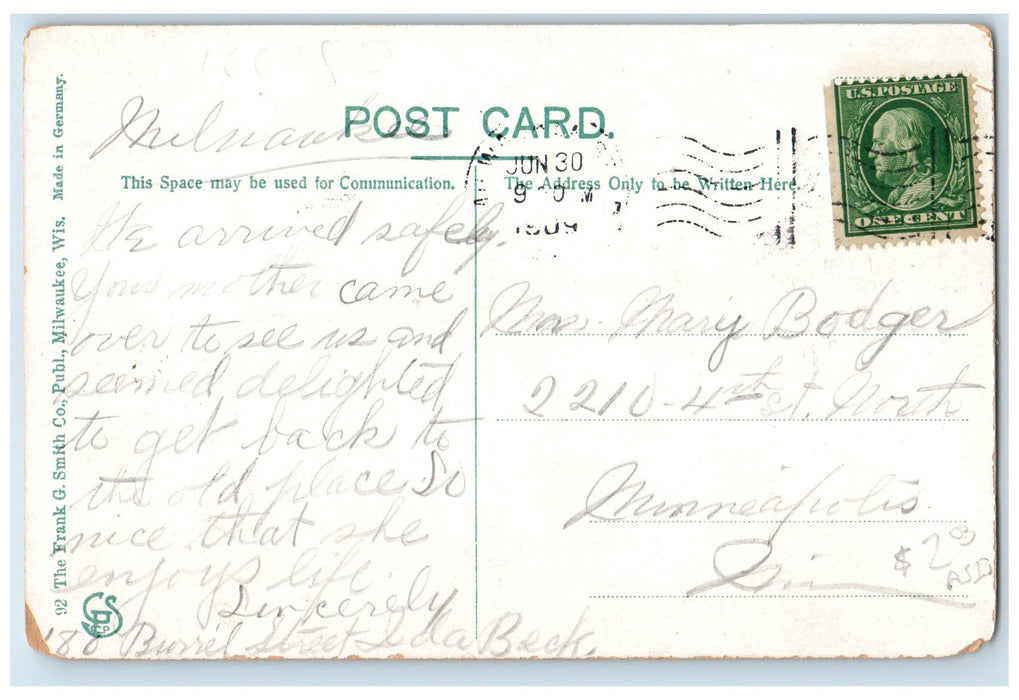 POST CARD.
This Space may be used for Communication.
The Address Only to be Written Here.
Milwaukee
JUN 30
9 0 M
1909
U.S. POSTAGE
ONE CENT
We arrived safely.
Your mother came
over to see us and
seemed delighted
to get back to
the old place So
nice that she
enjoys life.
Sincerely
Ida Beck.
Burrel Street
Mrs. Mary Bodger
2210 - 4th St. North
Minneapolis
Minn
$ 2
ASD
92 The Frank G. Smith Co., Publ., Milwaukee, Wis. Made in Germany.